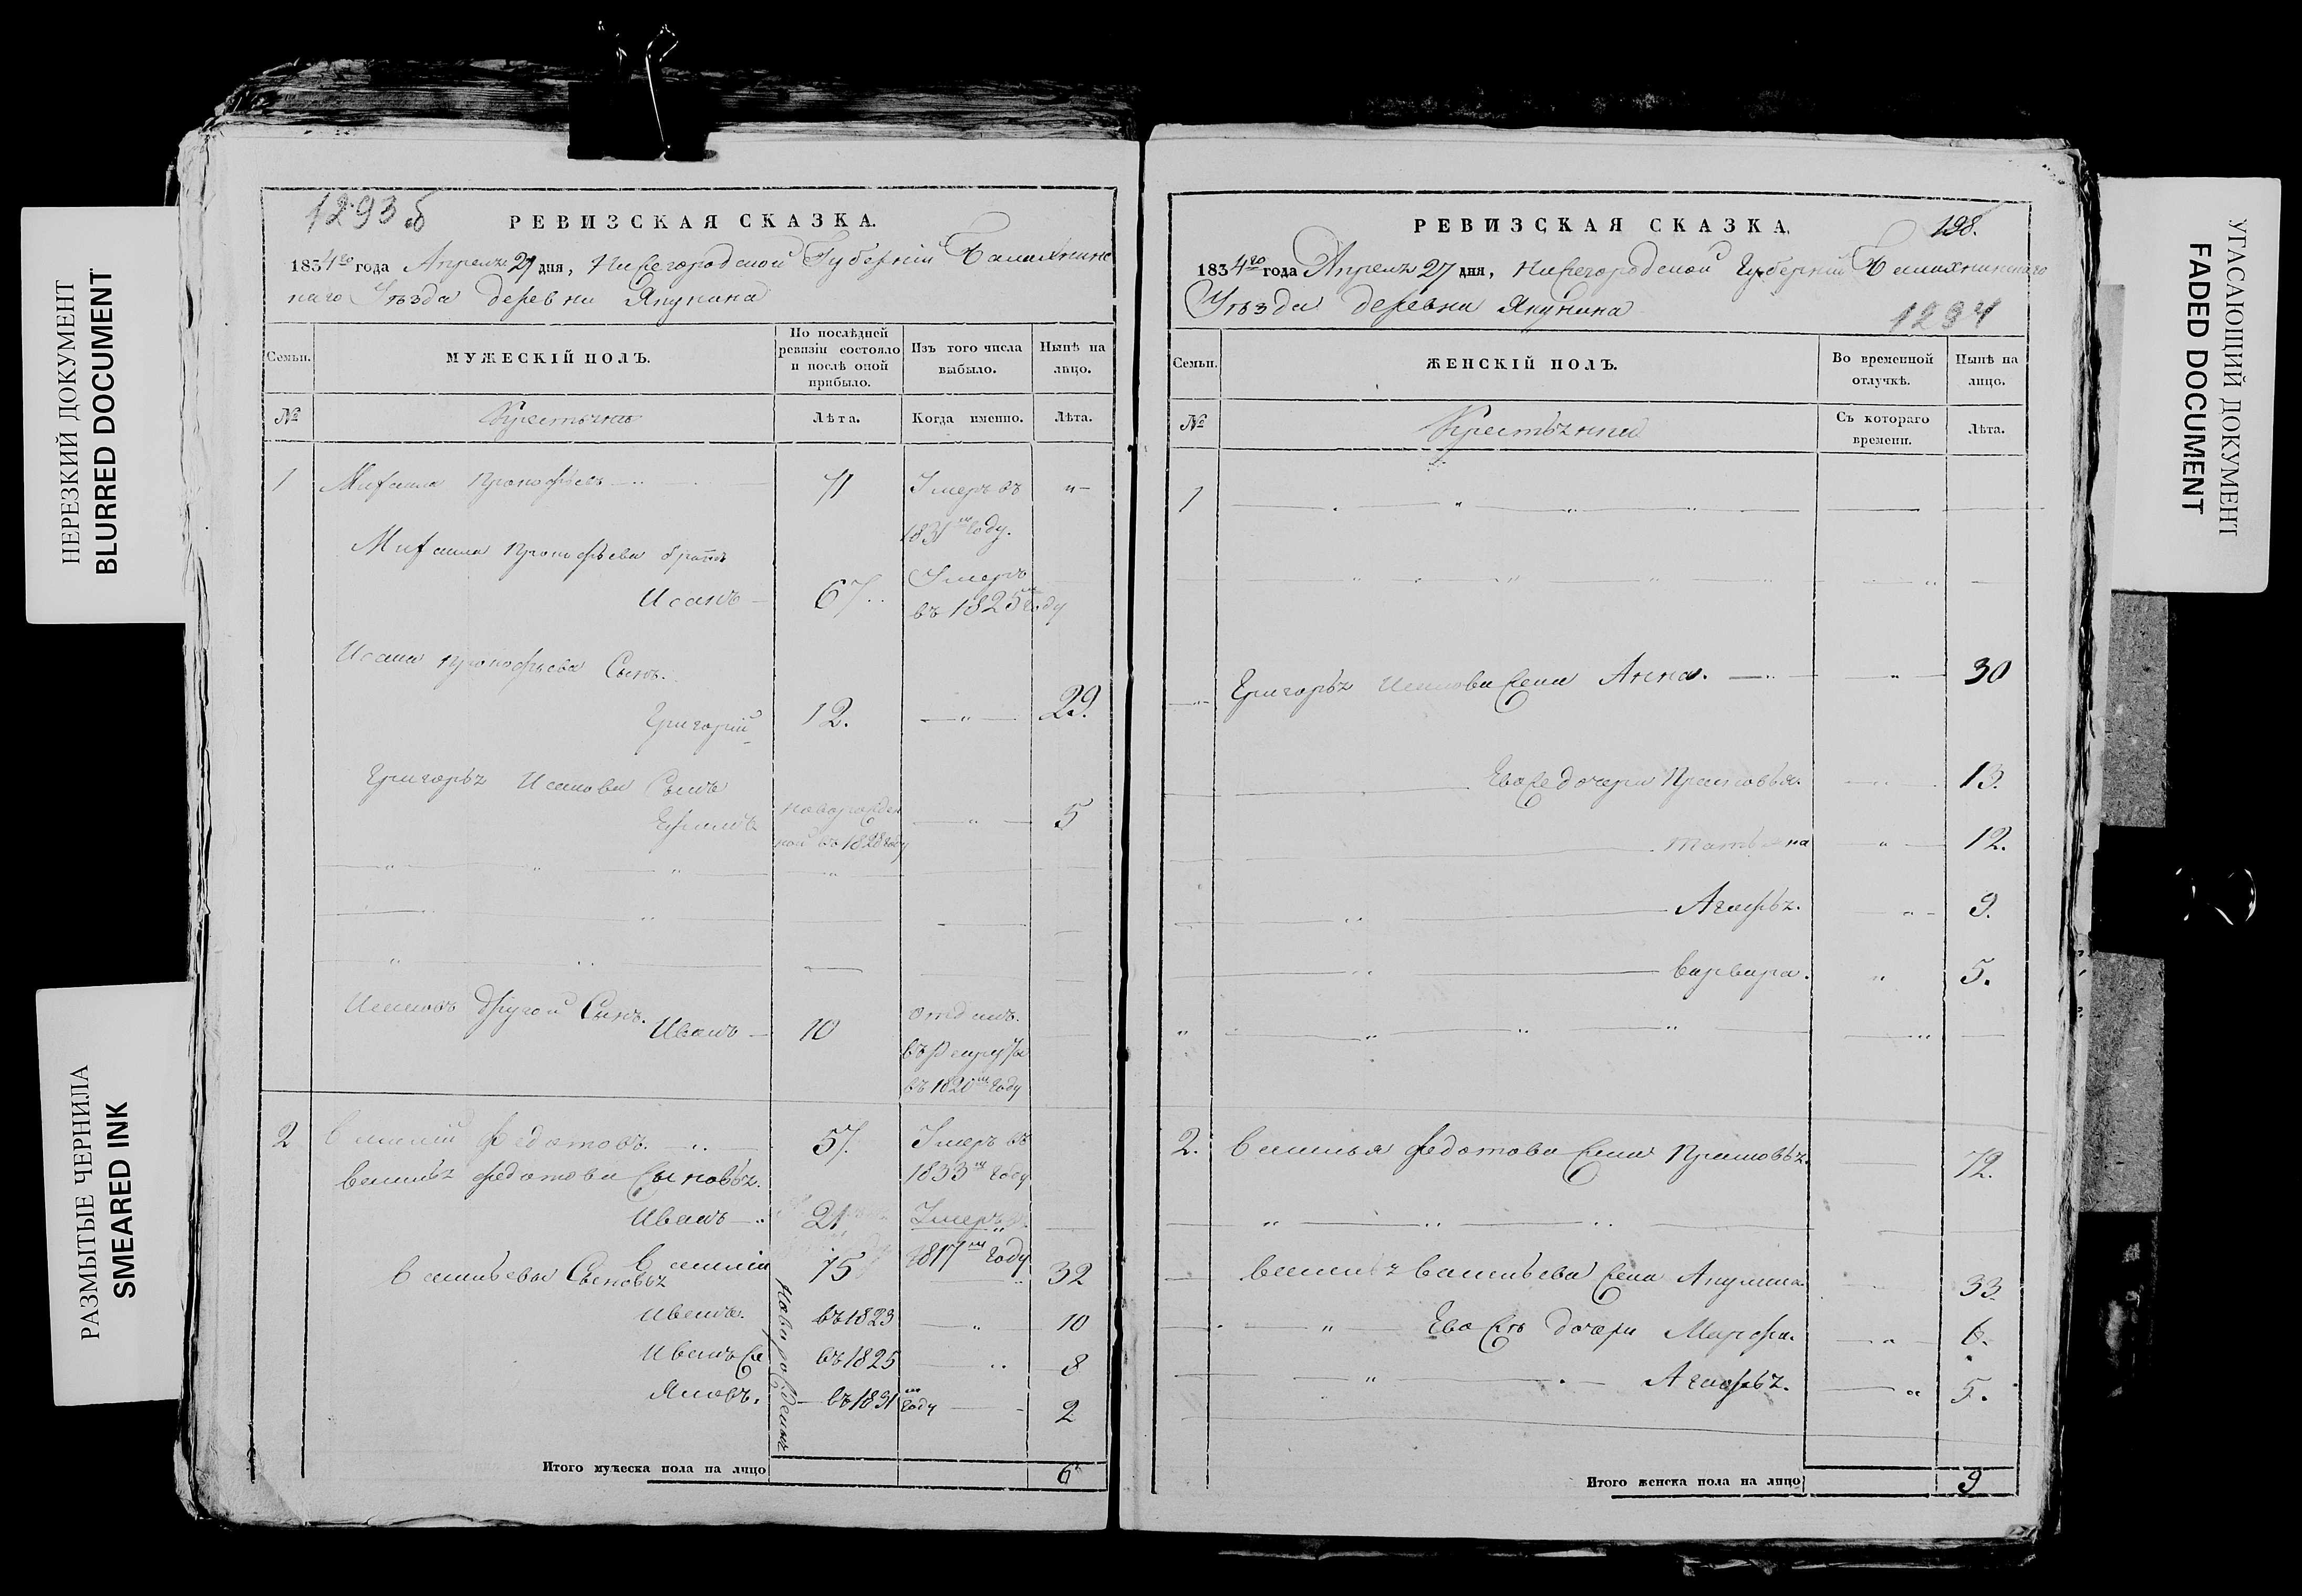 НЕРЕЗКИЙ ДОКУМЕНТ
BLURRED DOCUMENT
РАЗМЫТЫЕ ЧЕРНИЛА
SMEARED INK
1293об
РЕВИЗСКАЯ СКАЗКА.
1834го года Апреля 27 дня, Нижегородской Губернии Балахнинс
каго Уезда деревни Якунина
Семьи.
МУЖЕСКІЙ ПОЛЪ.
По послѣдней ревизіи состояло и послѣ оной прибыло.
Изъ того числа выбыло.
Нынѣ на лицо.
№
Крестьяне
Лѣта.
Когда именно.
Лѣта.
1 Михаила Прокофьевъ 71 Умеръ въ
1831м году.
Михаила Прокофьева братъ
Исакъ 67 Умеръ
въ 1825м году
Исака Прокофьева Сынъ.
Григорий 12. 29.
Григорья Исакова Сынъ
Ефимъ новорожден 5
ной въ 1828 году
Исаковъ другой Сынъ.
Иванъ 10 отданъ
въ рекруты
въ 1820м году
2 Василий Федотовъ 57. Умеръ въ
1833м году
Василья Федотова Сыновья.
Иванъ 21 Умеръ въ
1817м году
Василий 15 32
Васильева Сыновья
Новорожденные
Иванъ. въ 1823 10
Иванъ же въ 1825 8
Яковъ. въ 1831м году 2
Итого мужеска пола на лицо 6
РЕВИЗСКАЯ СКАЗКА.
198.
1834го года Апреля 27 дня, Нижегородской Губернии Балахнинскаго
Уезда деревни Якунина
1294
Семьи.
ЖЕНСКІЙ ПОЛЪ.
Во временной отлучкѣ.
Нынѣ на лицо.
№
Крестьянки
Съ котораго времени.
Лѣта.
1
Григорья Исакова жена Анна. 30
Ево же дочери Прасковья. 13.
Татьяна 12.
Агафья. 9.
Варвара. 5.
2. Василья Федотова жена Прасковья. 72.
Василья Васильева жена Акулина 33.
Ево жъ дочери Марфа. 6.
Агафья. 5.
Итого женска пола на лицо 9
УГАСАЮЩИЙ ДОКУМЕНТ
FADED DOCUMENT